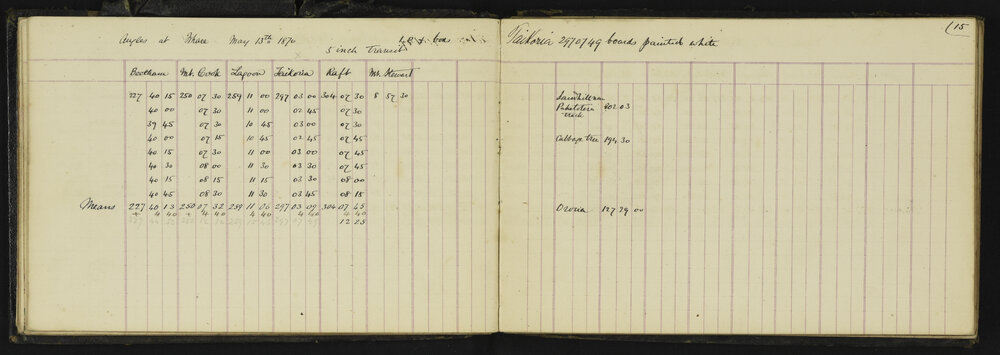 Angles at Whare May 13th 1870
5 inch Transit
Beetham Mt. Cook Lagoon Taikoria Raft Mt. Stewart
227 40 15 250 07 30 259 11 00 297 03 00 304 07 30 8 57 30
40 00 07 30 11 00 02 45 07 30
39 45 07 30 10 45 03 00 07 30
40 00 07 15 10 45 02 45 07 45
40 15 07 30 11 00 03 00 07 45
40 30 08 00 11 30 03 30 07 45
40 15 08 15 11 15 03 30 08 00
40 45 08 30 11 30 03 45 08 15
Means 227 40 13 250 07 52 259 11 06 297 03 09 304 07 45
+ 4 40 4 40 4 40 4 40 4 40
12 25
(15
Taikoria 297 07 49 boards painted white
Sandhill near
Puketotara 202 03
track
Cabbage tree 194 30
Oroua 127 39 00